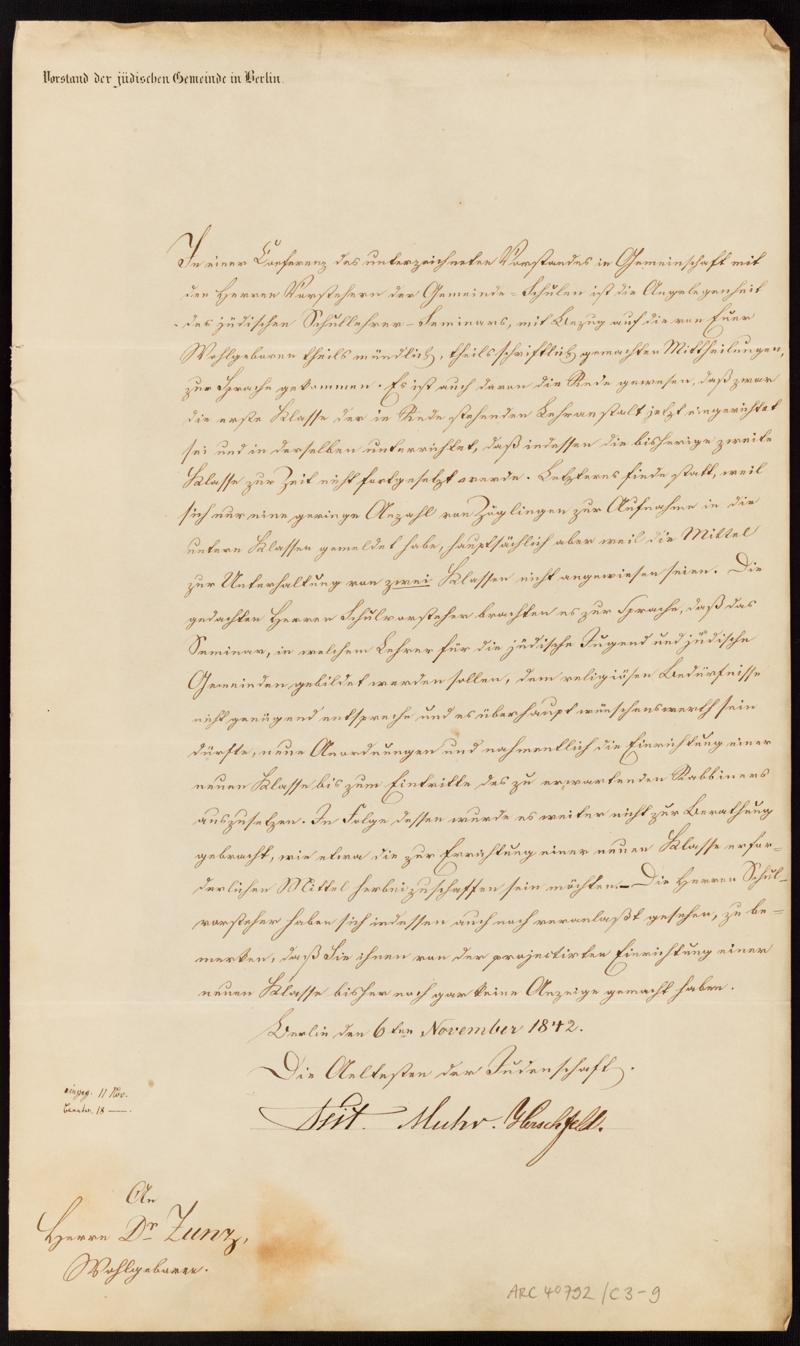 Vorstand der jüdischen Gemeinde in Berlin.
In einer Conferenz des unterzeichneten Vorstandes in Gemeinschaft mit
den Herren Vorstehern der Gemeinde-Schulen ist die Angelegenheit
des jüdischen Schullehrer-Seminars, mit Bezug auf die von Euer
Wohlgeboren theils mündlich, theils schriftlich gemachten Mittheilungen,
zur Sprache gekommen. Es ist auch davon die Rede gewesen, daß zwar
die erste Klasse der in Rede stehenden Lehranstalt jetzt eingerichtet
sei und in derselben unterrichtet, daß indessen die bisherige zweite
Klasse zur Zeit nicht fortgesetzt werde. Letzteres finde statt, weil
sich nur eine geringe Anzahl von Zöglingen zur Aufnahme in die
untern Klassen gemeldet habe, hauptsächlich aber weil die Mittel
zur Unterhaltung von zwei Klassen nicht angewiesen seien. Die
gedachten Herren Schulvorsteher brachten es zur Sprache, daß das
Seminar, in welchem Lehrer für die jüdische Jugend und jüdische
Gemeinden gebildet werden sollen, dem religiösen Bedürfnisse
nicht genügend entspreche und es überhaupt wünschenswerth sein
dürfte, neue Anordnungen und nahmentlich die Einrichtung einer
neuen Klasse bis zum Eintritte des zu erwartenden Rabbiners
auszusetzen. In Folge dessen wurde es weiter nicht zur Berathung
gebracht, wie etwa die zur Errichtung einer neuen Klasse erfor=
derlichen Mittel herbeizuschaffen sein möchten. – Die Herren Schul-
vorsteher haben sich indessen auch noch veranlaßt gesehen, zu be=
merken, daß Sie ihnen von der projectirten Einrichtung einer
neuen Klasse bisher noch gar keine Anzeige gemacht haben.
Berlin den 6ten November 1842.
Die Aeltesten der Judenschaft.
Veit. Muhr. Herschfeld.
eingeg. 11 Nov.
beantw. 18 —.
An
Herrn Dr Zunz,
Wohlgeboren.
ARC 40792/C3-9